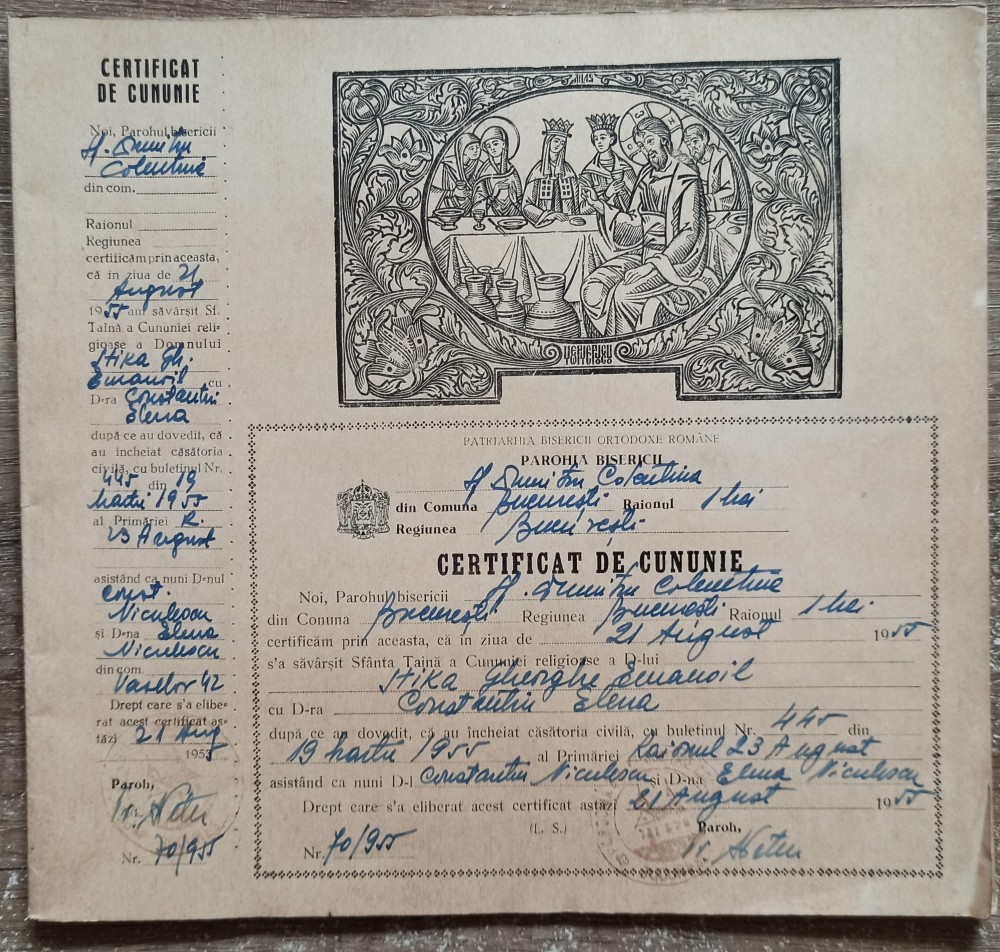 CERTIFICAT
DE CUNUNIE
Noi, Parohul bisericii
Sf. Dumitru
Colentina
din com.
Raionul
Regiunea
certificăm prin aceasta,
că în ziua de 21
August
1955 am săvârșit Sf.
Taină a Cununiei reli-
gioase a Domnului
Stika Gh.
Emanoil cu
D-ra Constantin
Elena
după ce au dovedit, că
au încheiat căsătoria
civilă, cu buletinul Nr.
445 din 19
Martie 1955
al Primăriei R.
23 August
asistând ca nuni D-nul
Const.
Niculescu
și D-na Elena
Niculescu
din com.
Vaselor 42
Drept care s'a elibe-
rat acest certificat as-
tăzi 21 Aug
1955
Paroh,
Pr.
Nr. 70/955
PATRIARHIA BISERICII ORTODOXE ROMÂNE
PAROHIA BISERICII
Sf Dumitru Colentina
din Comuna București Raionul 1 Mai
Regiunea București
CERTIFICAT DE CUNUNIE
Noi, Parohul bisericii Sf. Dumitru Colentina
din Comuna București Regiunea București Raionul 1 Mai
certificăm prin aceasta, că în ziua de 21 August 1955
s'a săvârșit Sfânta Taină a Cununiei religioase a D-lui
Stika Gheorghe Emanoil
cu D-ra Constantin Elena
după ce au dovedit, că au încheiat căsătoria civilă, cu buletinul Nr. 445 din
19 Martie 1955 al Primăriei Raionul 23 August
asistând ca nuni D-l Constantin Niculescu și D-na Elena Niculescu
Drept care s'a eliberat acest certificat astăzi 21 August 1955
(L. S.) Paroh,
Nr. 70/955 Pr.